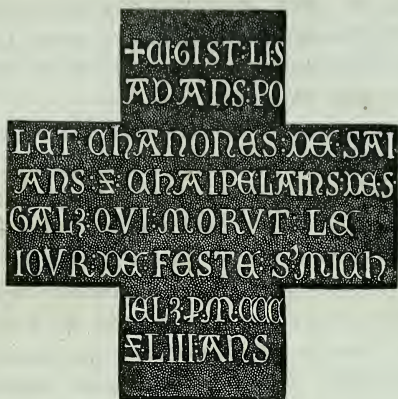 +CI GIST: LIS
ADANS: PO
LET CHANONES: DE: SAI
ANS: ⁊ CHAIPELAINS: DE: S
GALꝫ: QVI: MORVT: LE
IOVR DE FESTE S'MICH
IELꝫ: P: M: CCCC
⁊ LIII: ANS